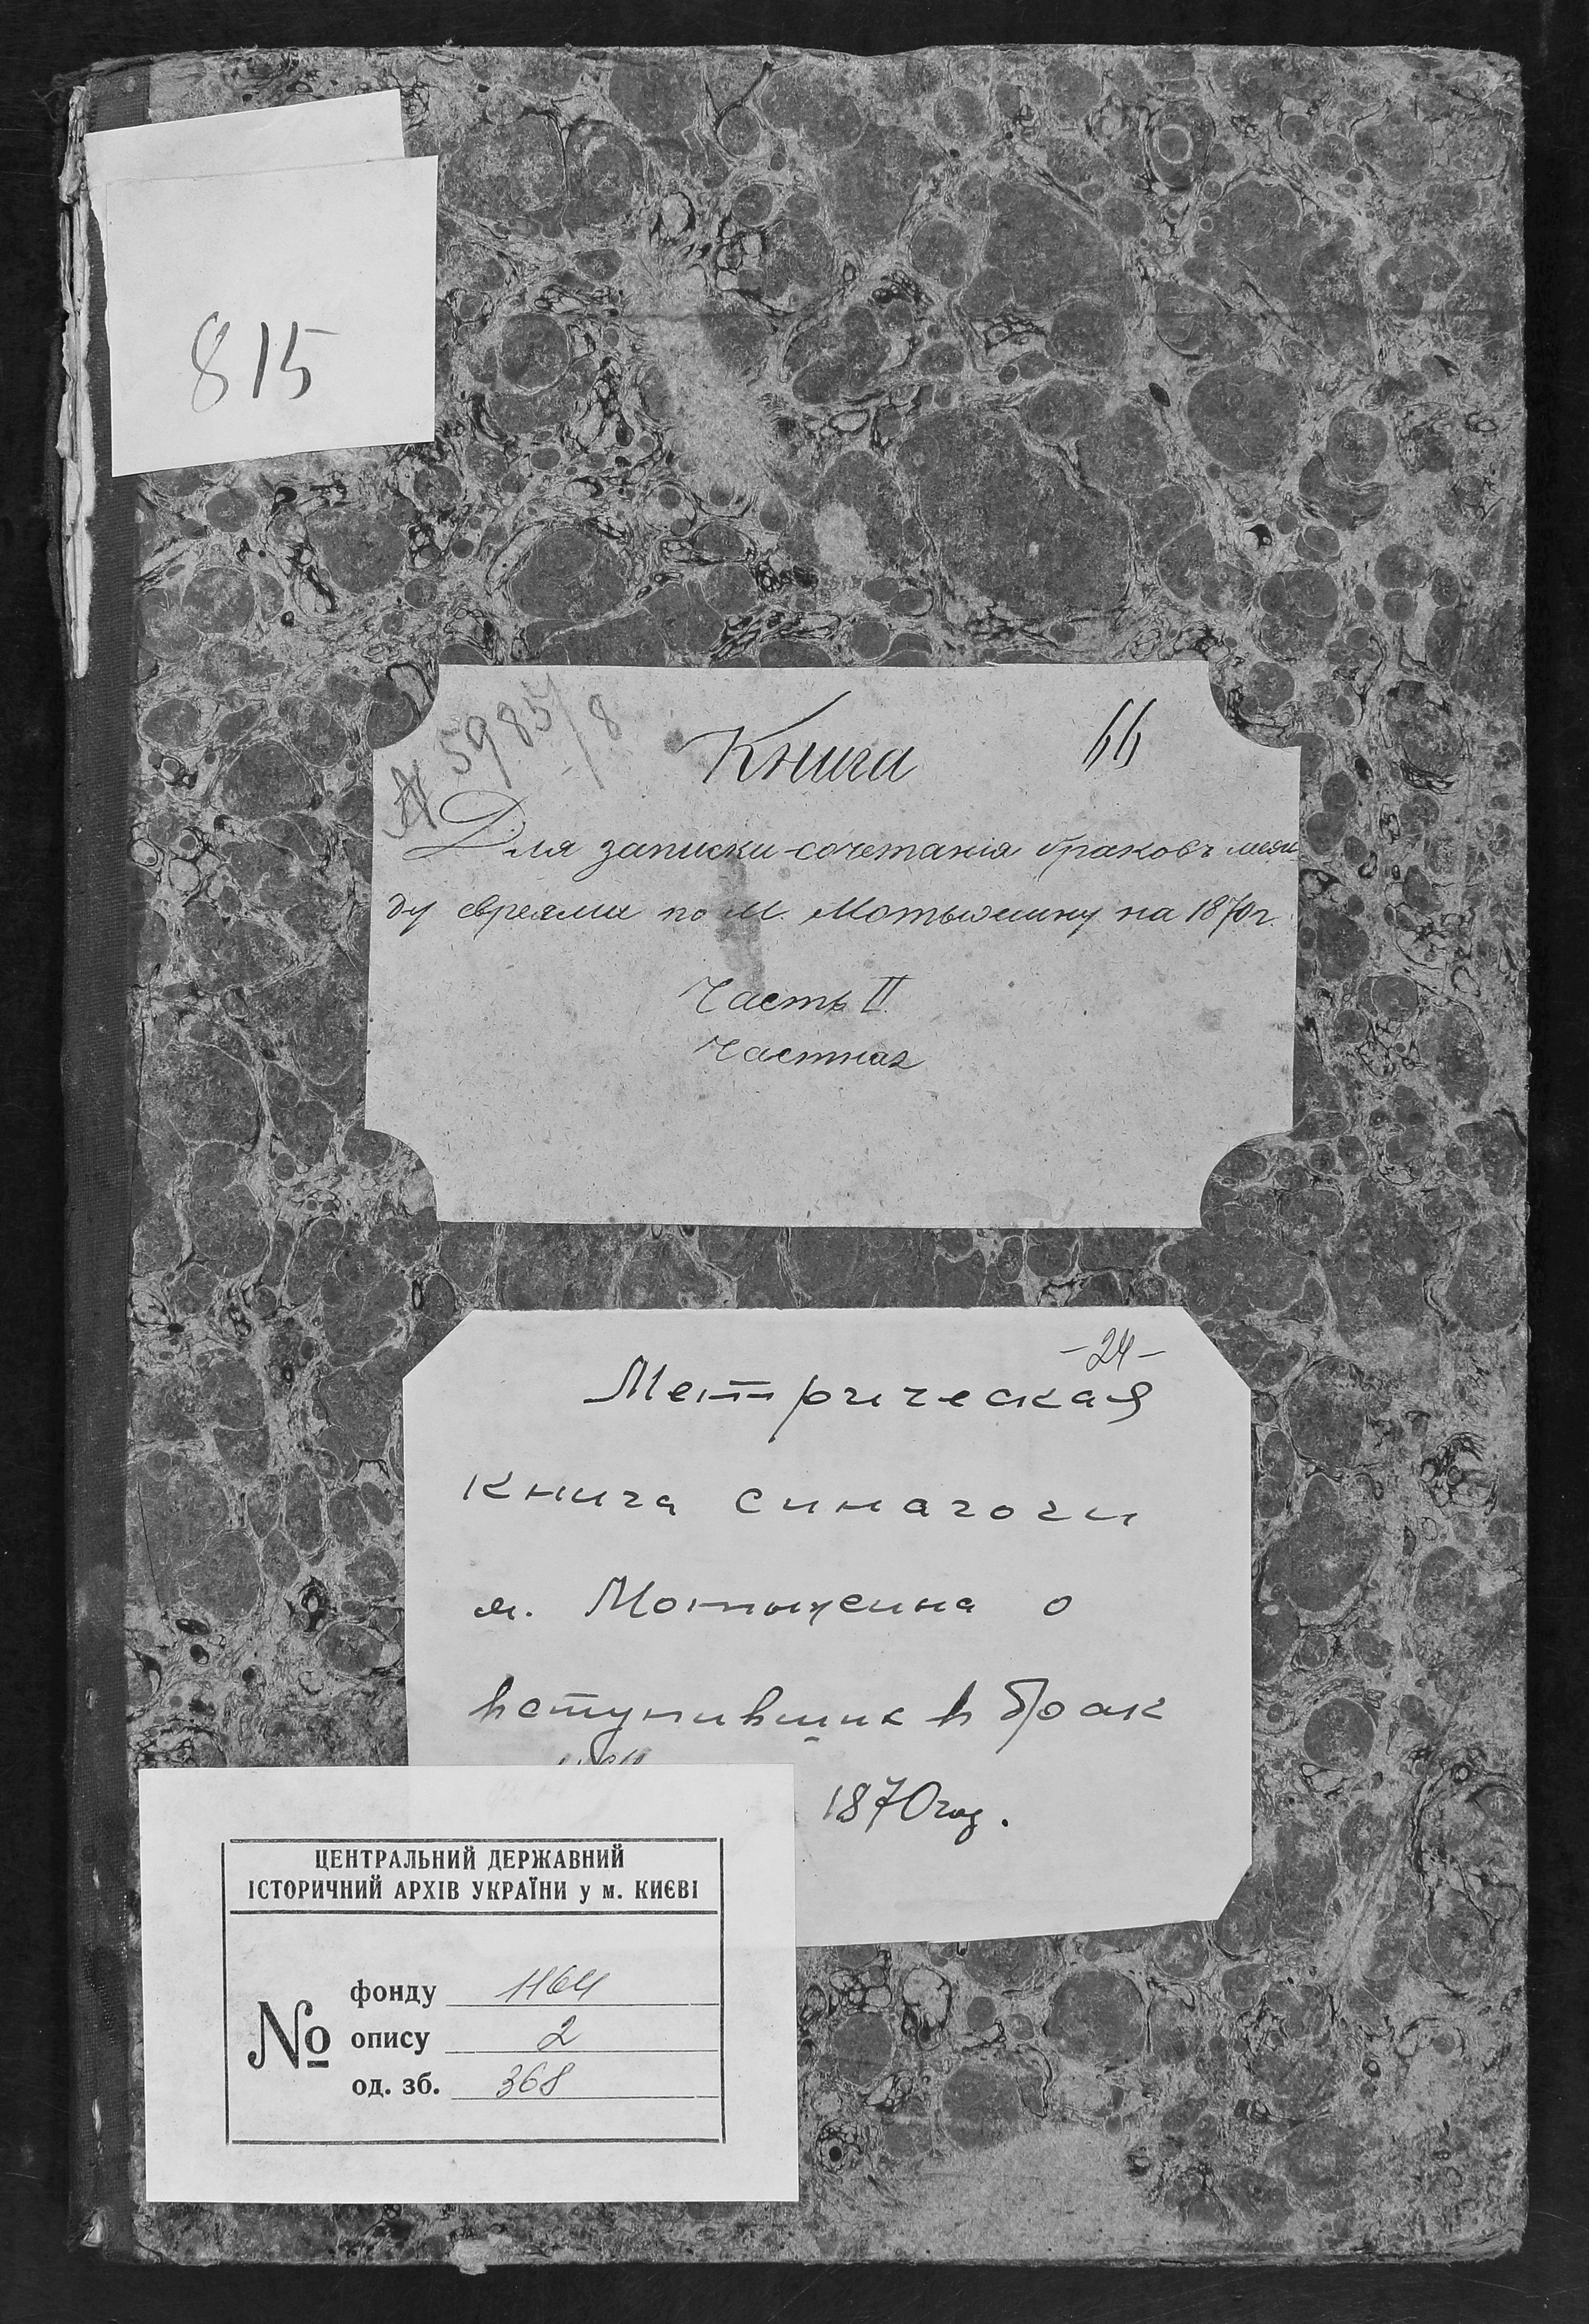 815
№ 5985/8
Книга
66
Для записки сочетанія браковъ меж
ду евреями по м. Мотыжину на 1870 г.
Часть II
Частная
-24-
Метрическая
книга синагоги
м. Мотыжина о
вступивших в брак
1870 год.
ЦЕНТРАЛЬНИЙ ДЕРЖАВНИЙ
ІСТОРИЧНИЙ АРХІВ УКРАЇНИ у м. КИЄВІ
№
фонду 1164
опису 2
од. зб. 368